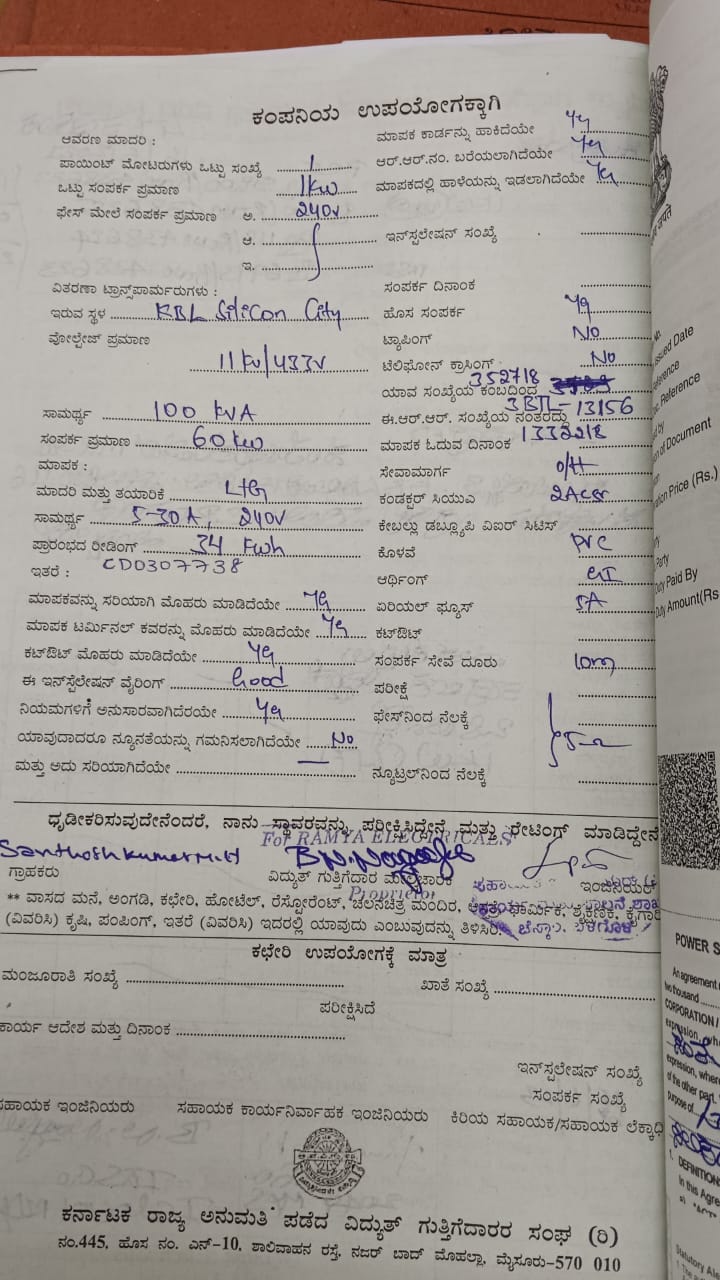 ಕಂಪನಿಯ ಉಪಯೋಗಕ್ಕಾಗಿ
ಆವರಣ ಮಾದರಿ :
ಪಾಯಿಂಟ್ ಮೋಟರುಗಳು ಒಟ್ಟು ಸಂಖ್ಯೆ 1
ಒಟ್ಟು ಸಂಪರ್ಕ ಪ್ರಮಾಣ 1kw
ಫೇಸ್ ಮೇಲೆ ಸಂಪರ್ಕ ಪ್ರಮಾಣ ಅ. 240v
ಆ.
ಇ.
ವಿತರಣಾ ಟ್ರಾನ್ಸ್‌ಪಾರ್ಮರುಗಳು :
ಇರುವ ಸ್ಥಳ RBL Silicon City
ವೋಲ್ಟೇಜ್ ಪ್ರಮಾಣ
11kv/433v
ಸಾಮರ್ಥ್ಯ 100 kVA
ಸಂಪರ್ಕ ಪ್ರಮಾಣ 60kw
ಮಾಪಕ :
ಮಾದರಿ ಮತ್ತು ತಯಾರಿಕೆ L+G
ಸಾಮರ್ಥ್ಯ 5-30A, 240V
ಪ್ರಾರಂಭದ ರೀಡಿಂಗ್ 34 kwh
ಇತರೆ : CD0307738
ಮಾಪಕವನ್ನು ಸರಿಯಾಗಿ ಮೊಹರು ಮಾಡಿದೆಯೇ Yes
ಮಾಪಕ ಟರ್ಮಿನಲ್ ಕವರನ್ನು ಮೊಹರು ಮಾಡಿದೆಯೇ Yes
ಕಟ್‌ಔಟ್ ಮೊಹರು ಮಾಡಿದೆಯೇ Yes
ಈ ಇನ್‌ಸ್ಟೆಲೇಷನ್ ವೈರಿಂಗ್ Good
ನಿಯಮಗಳಿಗೆ ಅನುಸಾರವಾಗಿದೆರಯೇ Yes
ಯಾವುದಾದರೂ ನ್ಯೂನತೆಯನ್ನು ಗಮನಿಸಲಾಗಿದೆಯೇ No
ಮತ್ತು ಅದು ಸರಿಯಾಗಿದೆಯೇ
ಮಾಪಕ ಕಾರ್ಡನ್ನು ಹಾಕಿದೆಯೇ Yes
ಆರ್.ಆರ್.ನಂ. ಬರೆಯಲಾಗಿದೆಯೇ Yes
ಮಾಪಕದಲ್ಲಿ ಹಾಳೆಯನ್ನು ಇಡಲಾಗಿದೆಯೇ Yes
ಇನ್‌ಸ್ಟಲೇಷನ್ ಸಂಖ್ಯೆ
ಸಂಪರ್ಕ ದಿನಾಂಕ
ಹೊಸ ಸಂಪರ್ಕ Yes
ಟ್ಯಾಪಿಂಗ್ No
ಟೆಲಿಫೋನ್ ಕ್ರಾಸಿಂಗ್ No
ಯಾವ ಸಂಖ್ಯೆಯ ಕಂಬದಿಂದ 352718
ಈ.ಆರ್.ಆರ್. ಸಂಖ್ಯೆಯ ನಂತರದ್ದು 3BTL-13156
ಮಾಪಕ ಓದುವ ದಿನಾಂಕ 1332218
ಸೇವಾಮಾರ್ಗ o/H
ಕಂಡಕ್ಟರ್ ಸಿಯುಎ 2Acsr
ಕೇಬಲ್ಲು ಡಬ್ಲ್ಯೂಪಿ ವಿಐರ್ ಸಿಟಿಸ್
ಕೊಳವೆ PVC
ಆರ್ಥಿಂಗ್ GI
ಏರಿಯಲ್ ಫ್ಯೂಸ್ 5A
ಕಟ್‌ಔಟ್
ಸಂಪರ್ಕ ಸೇವೆ ದೂರು 10m
ಪರೀಕ್ಷೆ
ಫೇಸ್‌ನಿಂದ ನೆಲಕ್ಕೆ
ನ್ಯೂಟ್ರಲ್‌ನಿಂದ ನೆಲಕ್ಕೆ
ಧೃಡೀಕರಿಸುವುದೇನೆಂದರೆ, ನಾನು ಸ್ಥಾವರವನ್ನು ಪರೀಕ್ಷಿಸಿದ್ದೇನೆ ಮತ್ತು ರೇಟಿಂಗ್ ಮಾಡಿದ್ದೇನೆ
For RAMYA ELECTRICALS
Santhosh kumar M.H B.N.Nagesh
ಗ್ರಾಹಕರು ವಿದ್ಯುತ್ ಗುತ್ತಿಗೆದಾರ ಮೇಲ್ವಿಚಾರಕ ಇಂಜಿನಿಯರ್
Proprietor
** ವಾಸದ ಮನೆ, ಅಂಗಡಿ, ಕಛೇರಿ, ಹೋಟೆಲ್, ರೆಸ್ಟೋರೆಂಟ್, ಚಲನಚಿತ್ರ ಮಂದಿರ, ಆಸ್ಪತ್ರೆ, ಧಾರ್ಮಿಕ, ಶೈಕ್ಷಣಿಕ, ಕೈಗಾರಿ
(ವಿವರಿಸಿ) ಕೃಷಿ, ಪಂಪಿಂಗ್, ಇತರೆ (ವಿವರಿಸಿ) ಇದರಲ್ಲಿ ಯಾವುದು ಎಂಬುವುದನ್ನು ತಿಳಿಸಿರಿ.
ಕಛೇರಿ ಉಪಯೋಗಕ್ಕೆ ಮಾತ್ರ
ಮಂಜೂರಾತಿ ಸಂಖ್ಯೆ ಖಾತೆ ಸಂಖ್ಯೆ
ಪರೀಕ್ಷಿಸಿದೆ
ಕಾರ್ಯ ಆದೇಶ ಮತ್ತು ದಿನಾಂಕ
ಇನ್‌ಸ್ಟಲೇಷನ್ ಸಂಖ್ಯೆ
ಸಂಪರ್ಕ ಸಂಖ್ಯೆ
ಸಹಾಯಕ ಇಂಜಿನಿಯರು ಸಹಾಯಕ ಕಾರ್ಯನಿರ್ವಾಹಕ ಇಂಜಿನಿಯರು ಕಿರಿಯ ಸಹಾಯಕ/ಸಹಾಯಕ ಲೆಕ್ಕಾಧಿ
ಕರ್ನಾಟಕ ರಾಜ್ಯ ಅನುಮತಿ ಪಡೆದ ವಿದ್ಯುತ್ ಗುತ್ತಿಗೆದಾರರ ಸಂಘ (ರಿ)
ನಂ.445, ಹೊಸ ನಂ. ಎನ್-10, ಶಾಲಿವಾಹನ ರಸ್ತೆ, ನಜರ್ ಬಾದ್ ಮೊಹಲ್ಲಾ, ಮೈಸೂರು-570 010
Issued Date
Reference
of Document
Price (Rs.)
Party
Duty Paid By
Duty Amount(Rs
POWER S
An agreement
two thousand
CORPORATION /
expression, whe
expression, where
of the other part.
purpose of
1. DEFINITION
In this Agre
Statutory Ale